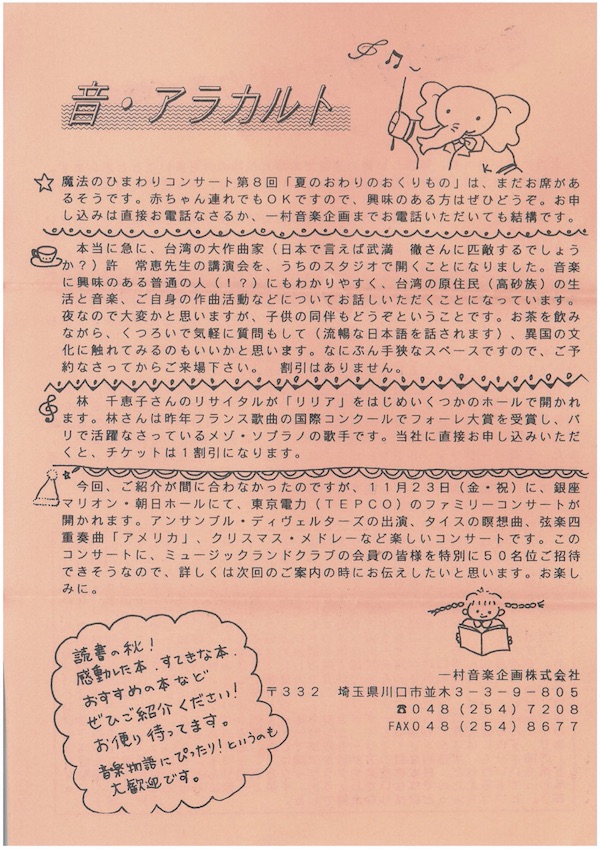 音・アラカルト
魔法のひまわりコンサート第8回「夏のおわりのおくりもの」は、まだお席があ
るそうです。赤ちゃん連れでもOKですので、興味のある方はぜひどうぞ。お申
し込みは直接お電話なさるか、一村音楽企画までお電話いただいても結構です。
本当に急に、台湾の大作曲家(日本で言えば武満 徹さんに匹敵するでしょう
か?)許 常恵先生の講演会を、うちのスタジオで開くことになりました。音楽
に興味のある普通の人(!?)にもわかりやすく、台湾の原住民(高砂族)の生
活と音楽、ご自身の作曲活動などについてお話しいただくことになっています。
夜なので大変かと思いますが、子供の同伴もどうぞということです。お茶を飲み
ながら、くつろいで気軽に質問もして(流暢な日本語を話されます)、異国の文
化に触れてみるのもいいかと思います。なにぶん手狭なスペースですので、ご予
約なさってからご来場下さい。 割引はありません。
林 千恵子さんのリサイタルが「リリア」をはじめいくつかのホールで開かれ
ます。林さんは昨年フランス歌曲の国際コンクールでフォーレ大賞を受賞し、パ
リで活躍なさっているメゾ・ソプラノの歌手です。当社に直接お申し込みいただ
くと、チケットは1割引になります。
今回、ご紹介が間に合わなかったのですが、11月23日(金・祝)に、銀座
マリオン・朝日ホールにて、東京電力(TEPCO)のファミリーコンサートが
開かれます。アンサンブル・ディヴェルターズの出演、タイスの瞑想曲、弦楽四
重奏曲「アメリカ」、クリスマス・メドレーなど楽しいコンサートです。この
コンサートに、ミュージックランドクラブの会員の皆様を特別に50名位ご招待
できそうなので、詳しくは次回のご案内の時にお伝えしたいと思います。お楽し
みに。
読書の秋!
感動した本、すてきな本、
おすすめの本など
ぜひご紹介ください!
お便り待ってます。
音楽物語にぴったり!というのも
大歓迎です。
一村音楽企画株式会社
〒332 埼玉県川口市並木3-3-9-805
☎048(254)7208
FAX048(254)8677